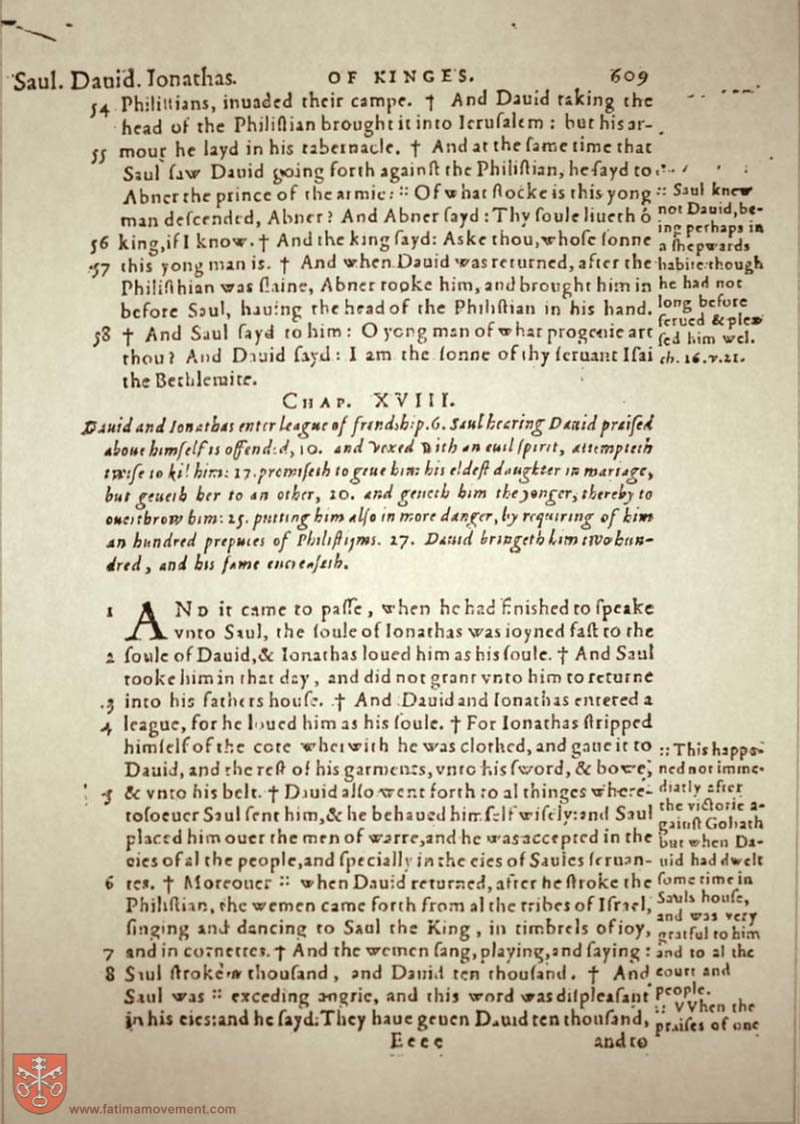 Saul. Dauid. Ionathas. OF KINGES. 609
54 Philiſtians, inuaded their campe. † And Dauid taking the
head of the Philiſtian brought it into Ieruſalem : but his ar-
55 mour he layd in his tabernacle. † And at the ſame time that
Saul ſaw Dauid going forth againſt the Philiſtian, he ſayd to
Abner the prince of the armie: :: Of what ſtocke is this yong
man deſcended, Abner? And Abner ſayd : Thy ſoule liueth ô
56 king, if I know. † And the king ſayd: Aske thou, whoſe ſonne
57 this yong man is. † And when Dauid was returned, after the
Philiſthian was ſlaine, Abner tooke him, and brought him in
before Saul, hauing the head of the Philiſtian in his hand.
58 † And Saul ſayd to him : O yong man of what progenie art
thou? And Dauid ſayd : I am the ſonne of thy ſeruant Iſai
the Bethlemite.
:: Saul knew
not Dauid, be-
ing perhaps in
a ſhepwards
habite: though
he had not
long before
ſerued & plea
ſed him wel.
ch. 16. v. 21.
CHAP. XVIII.
Dauid and Ionathas enter league of frendſhip. 6. Saul hearing Dauid praiſed
aboue himſelf is offended, 10. and vexed with an euil ſpirit, attempteth
twiſe to kil him: 17. promiſeth to geue him his eldeſt daughter in mariage,
but geueth her to an other, 20. and geueth him the yonger, thereby to
ouerthrow him: 25. putting him alſo in more danger, by requiring of him
an hundred prepuces of Philiſtijms. 27. Dauid bringeth him two hun-
dred, and his fame encreaſeth.
1 AND it came to paſſe, when he had finished to ſpeake
vnto Saul, the ſoule of Ionathas was ioyned faſt to the
2 ſoule of Dauid, & Ionathas loued him as his ſoule. † And Saul
tooke him in that day, and did not grant vnto him to returne
3 into his fathers houſe. † And Dauid and Ionathas entered a
4 league, for he loued him as his ſoule. † For Ionathas ſtripped
himſelf of the cote wherwith he was clothed, and gaue it to
Dauid, and the reſt of his garments, vnto his ſword, & bowe,
5 & vnto his belt. † Dauid alſo went forth to al thinges where-
toſoeuer Saul ſent him, & he behaued himſelf wiſely: and Saul
placed him ouer the men of warre, and he was accepted in the
eies of al the people, and ſpecially in the eies of Saules ſeruan-
6 tes. † Moreouer :: when Dauid returned, after he ſtroke the
Philiſtian, the wemen came forth from al the tribes of Iſrael,
ſinging and dancing to Saul the King, in timbrels of ioy,
7 and in cornettes. † And the wemen ſang, playing, and ſaying :
8 Saul ſtroke a thouſand, and Dauid ten thouſand. † And
Saul was :: exceding angrie, and this word was diſpleaſant
in his eies: and he ſayd: They haue geuen Dauid ten thouſand,
:: This happe-
ned not imme-
diatly after
the victorie a-
gainſt Goliath
but when Da-
uid had dwelt
ſome time in
Sauls houſe,
and was very
grateful to him
and to al the
court and
people.
:: VVhen the
praiſes of one
Eeee and to
www.fatimamovement.com